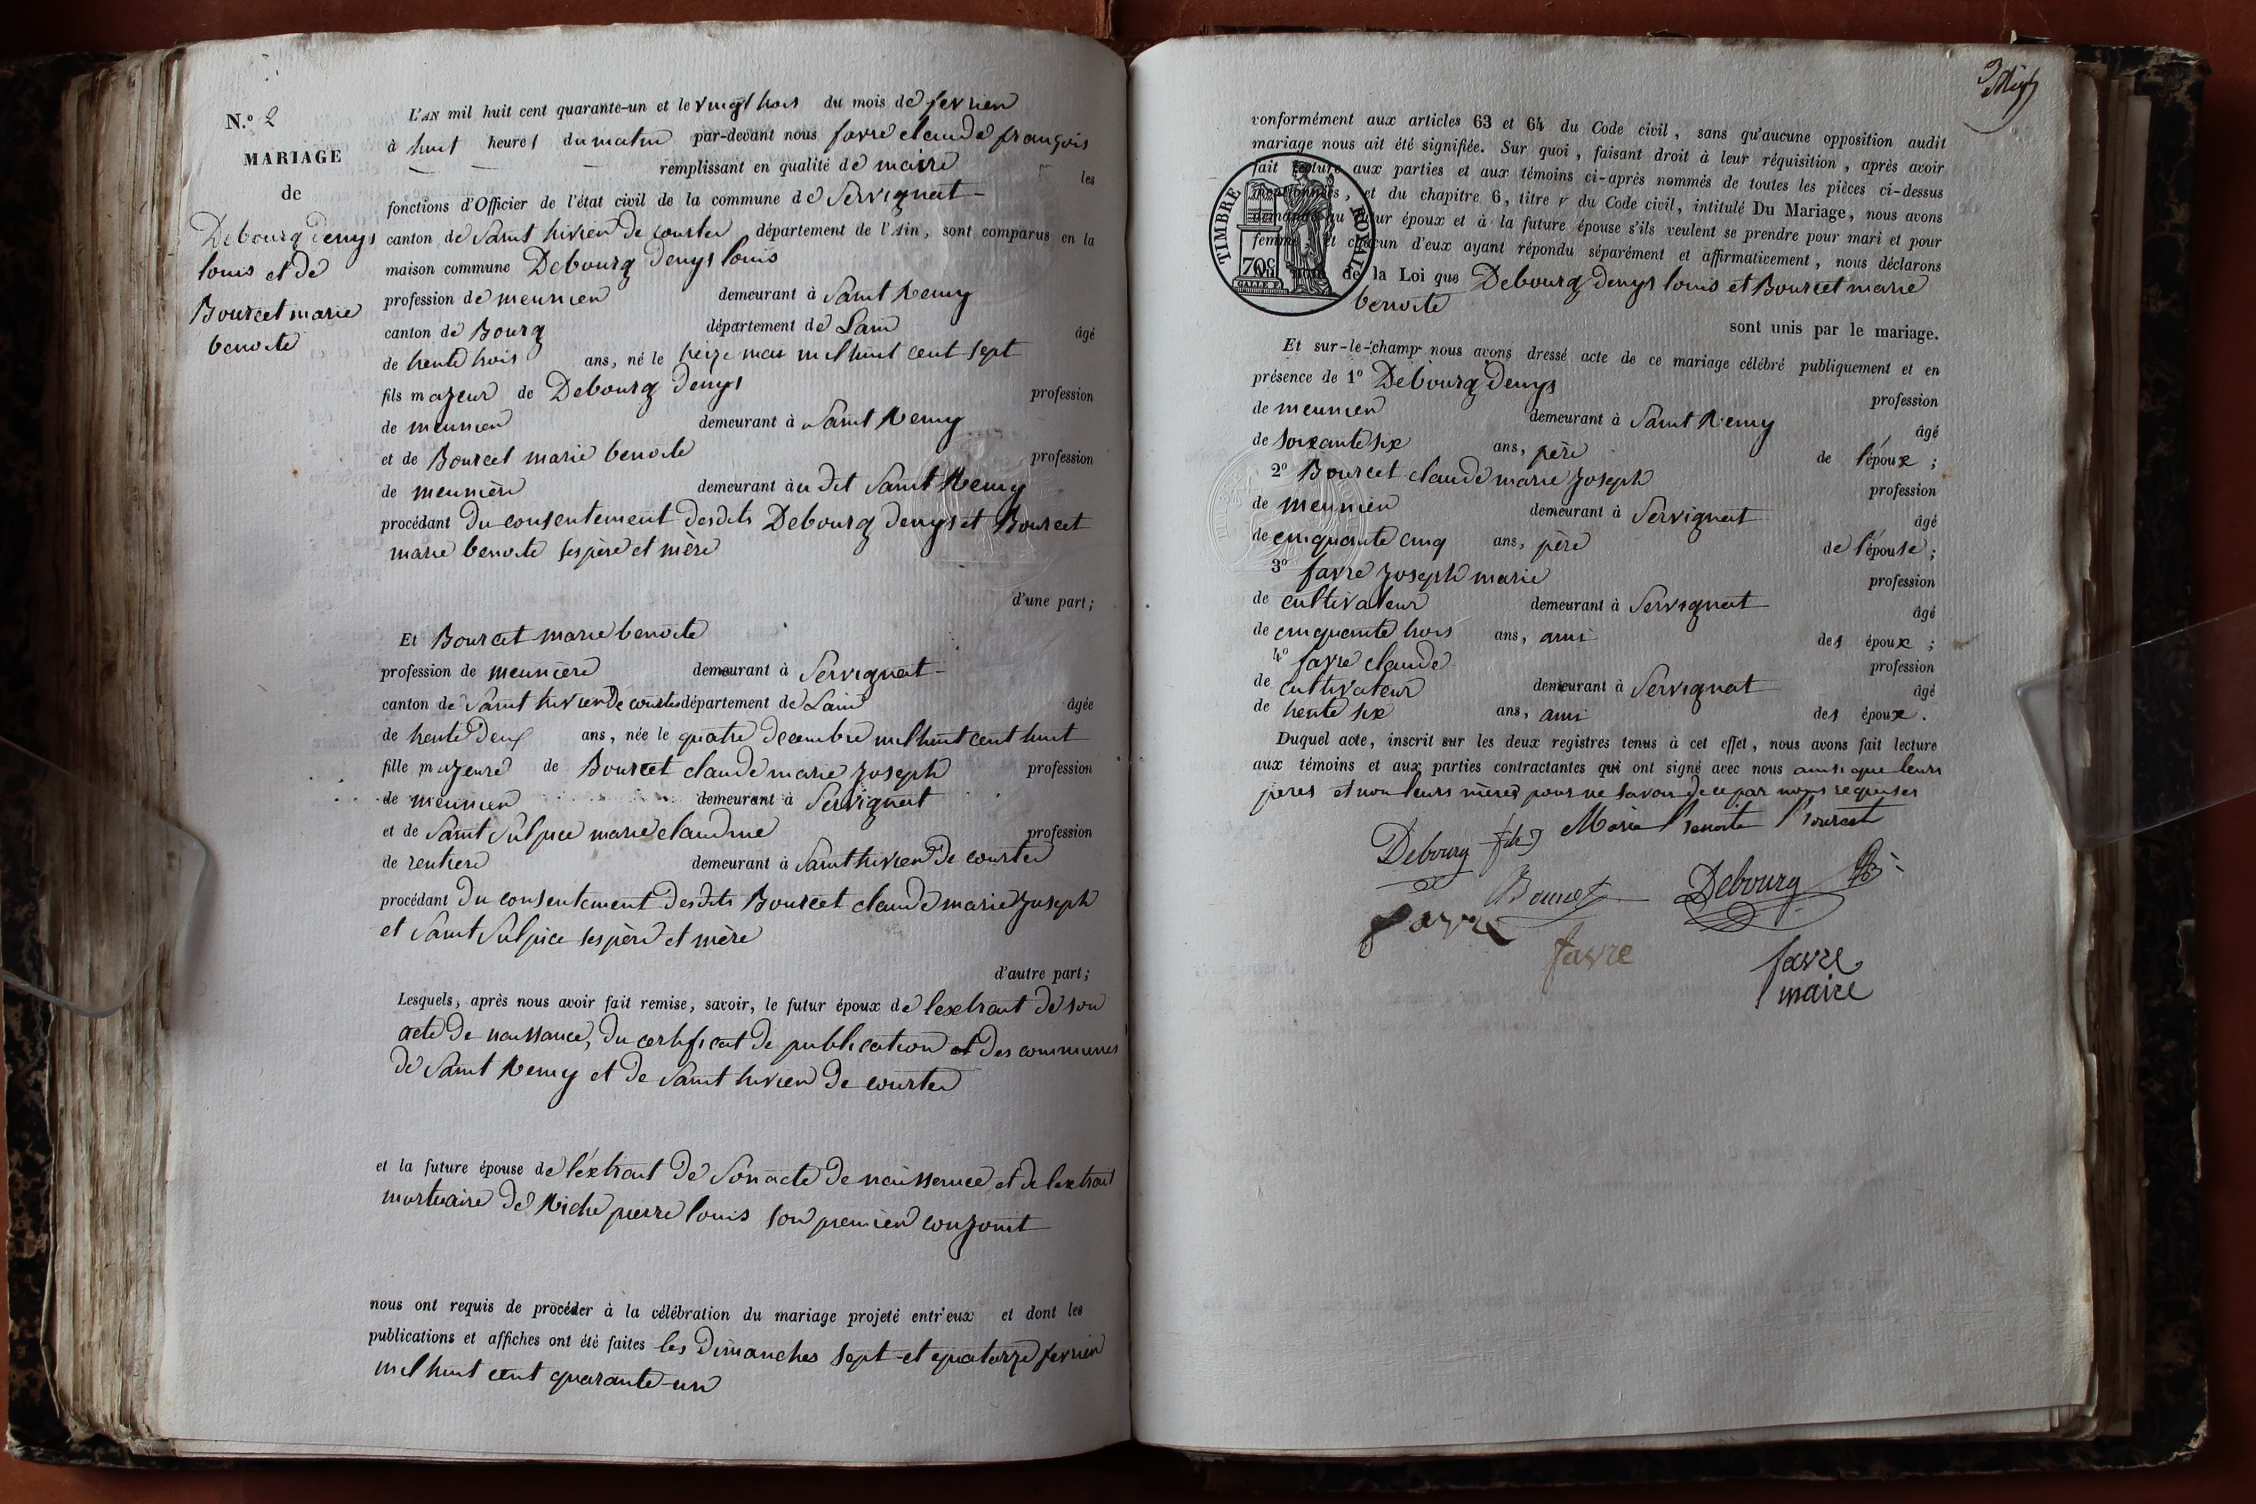 N.º 2
MARIAGE
de
Debourg denys
louis et de
Bourcet marie
benoite
L'AN mil huit cent quarante-un et le vingt trois du mois de fevrier
à huit heures du matin par-devant nous favre claude françois
remplissant en qualité de maire les
fonctions d'Officier de l'état civil de la commune de Servignat
canton de Saint trivier de courtes département de l'Ain, sont comparus en la
maison commune Debourg denys louis
profession de meunier demeurant à Saint Remy
canton de Bourg département de Lain âgé
de trente trois ans, né le treize mai mil huit cent sept
fils majeur de Debourg denys profession
de meunier demeurant à Saint Remy
et de Bourcet marie benoite profession
de meunière demeurant àu dit Saint Remy
procédant du consentement desdits Debourg denys et Bourcet
marie benoite ses père et mère
d'une part;
Et Bourcet marie benoite
profession de meunière demeurant à Servignat
canton de Saint trivier de courtes département de Lain âgée
de trente deux ans, née le quatre decembre mil huit cent huit
fille majeure de Bourcet claude marie joseph profession
de meunier demeurant à Servignat
et de Saint Sulpice marie claudine profession
de rentiere demeurant à Saint trivier de courtes
procédant du consentement desdits Bourcet claude marie joseph
et Saint Sulpice ses père et mère
d'autre part;
Lesquels, après nous avoir fait remise, savoir, le futur époux de lextrait de son
acte de naissance, du certificat de publication et des communes
de Saint Remy et de Saint trivier de courtes
et la future épouse de l'éxtrait de son acte de naissance et de lextrait
mortuaire de Riche pierre louis son premier conjoint
nous ont requis de procéder à la célébration du mariage projeté entr'eux et dont les
publications et affiches ont été faites les dimanches sept et quatorze fevrier
mil huit cent quarante-un
conformément aux articles 63 et 64 du Code civil, sans qu'aucune opposition audit
mariage nous ait été signifiée. Sur quoi, faisant droit à leur réquisition, après avoir
fait lecture aux parties et aux témoins ci-après nommés de toutes les pièces ci-dessus
mentionnées, et du chapitre 6, titre v du Code civil, intitulé Du Mariage, nous avons
demandé au futur époux et à la future épouse s'ils veulent se prendre pour mari et pour
femme et chacun d'eux ayant répondu séparément et affirmativement, nous déclarons
de la Loi que Debourg denys louis et Bourcet marie
benoite
sont unis par le mariage.
TIMBRE ROYAL
70c
Et sur-le-champ nous avons dressé acte de ce mariage célébré publiquement et en
présence de 1º Debourg denys profession
de meunier demeurant à Saint Remy âgé
de soixante six ans, père de l'époux;
2º Bourcet claude marie joseph profession
de meunier demeurant à Servignat âgé
de cinquante cinq ans, père de l'épouse;
3º favre joseph marie profession
de cultivateur demeurant à Servignat âgé
de cinquante trois ans, ami des époux;
4º favre claude profession
de cultivateur demeurant à Servignat âgé
de trente six ans, ami des époux.
Duquel acte, inscrit sur les deux registres tenus à cet effet, nous avons fait lecture
aux témoins et aux parties contractantes qui ont signé avec nous ainsi que leurs
peres et non leurs mères pour ne savoir de ce par nous requises
Debourg fils Marie Benoite Bourcet
Bourcet Debourg
favre favre favre
maire